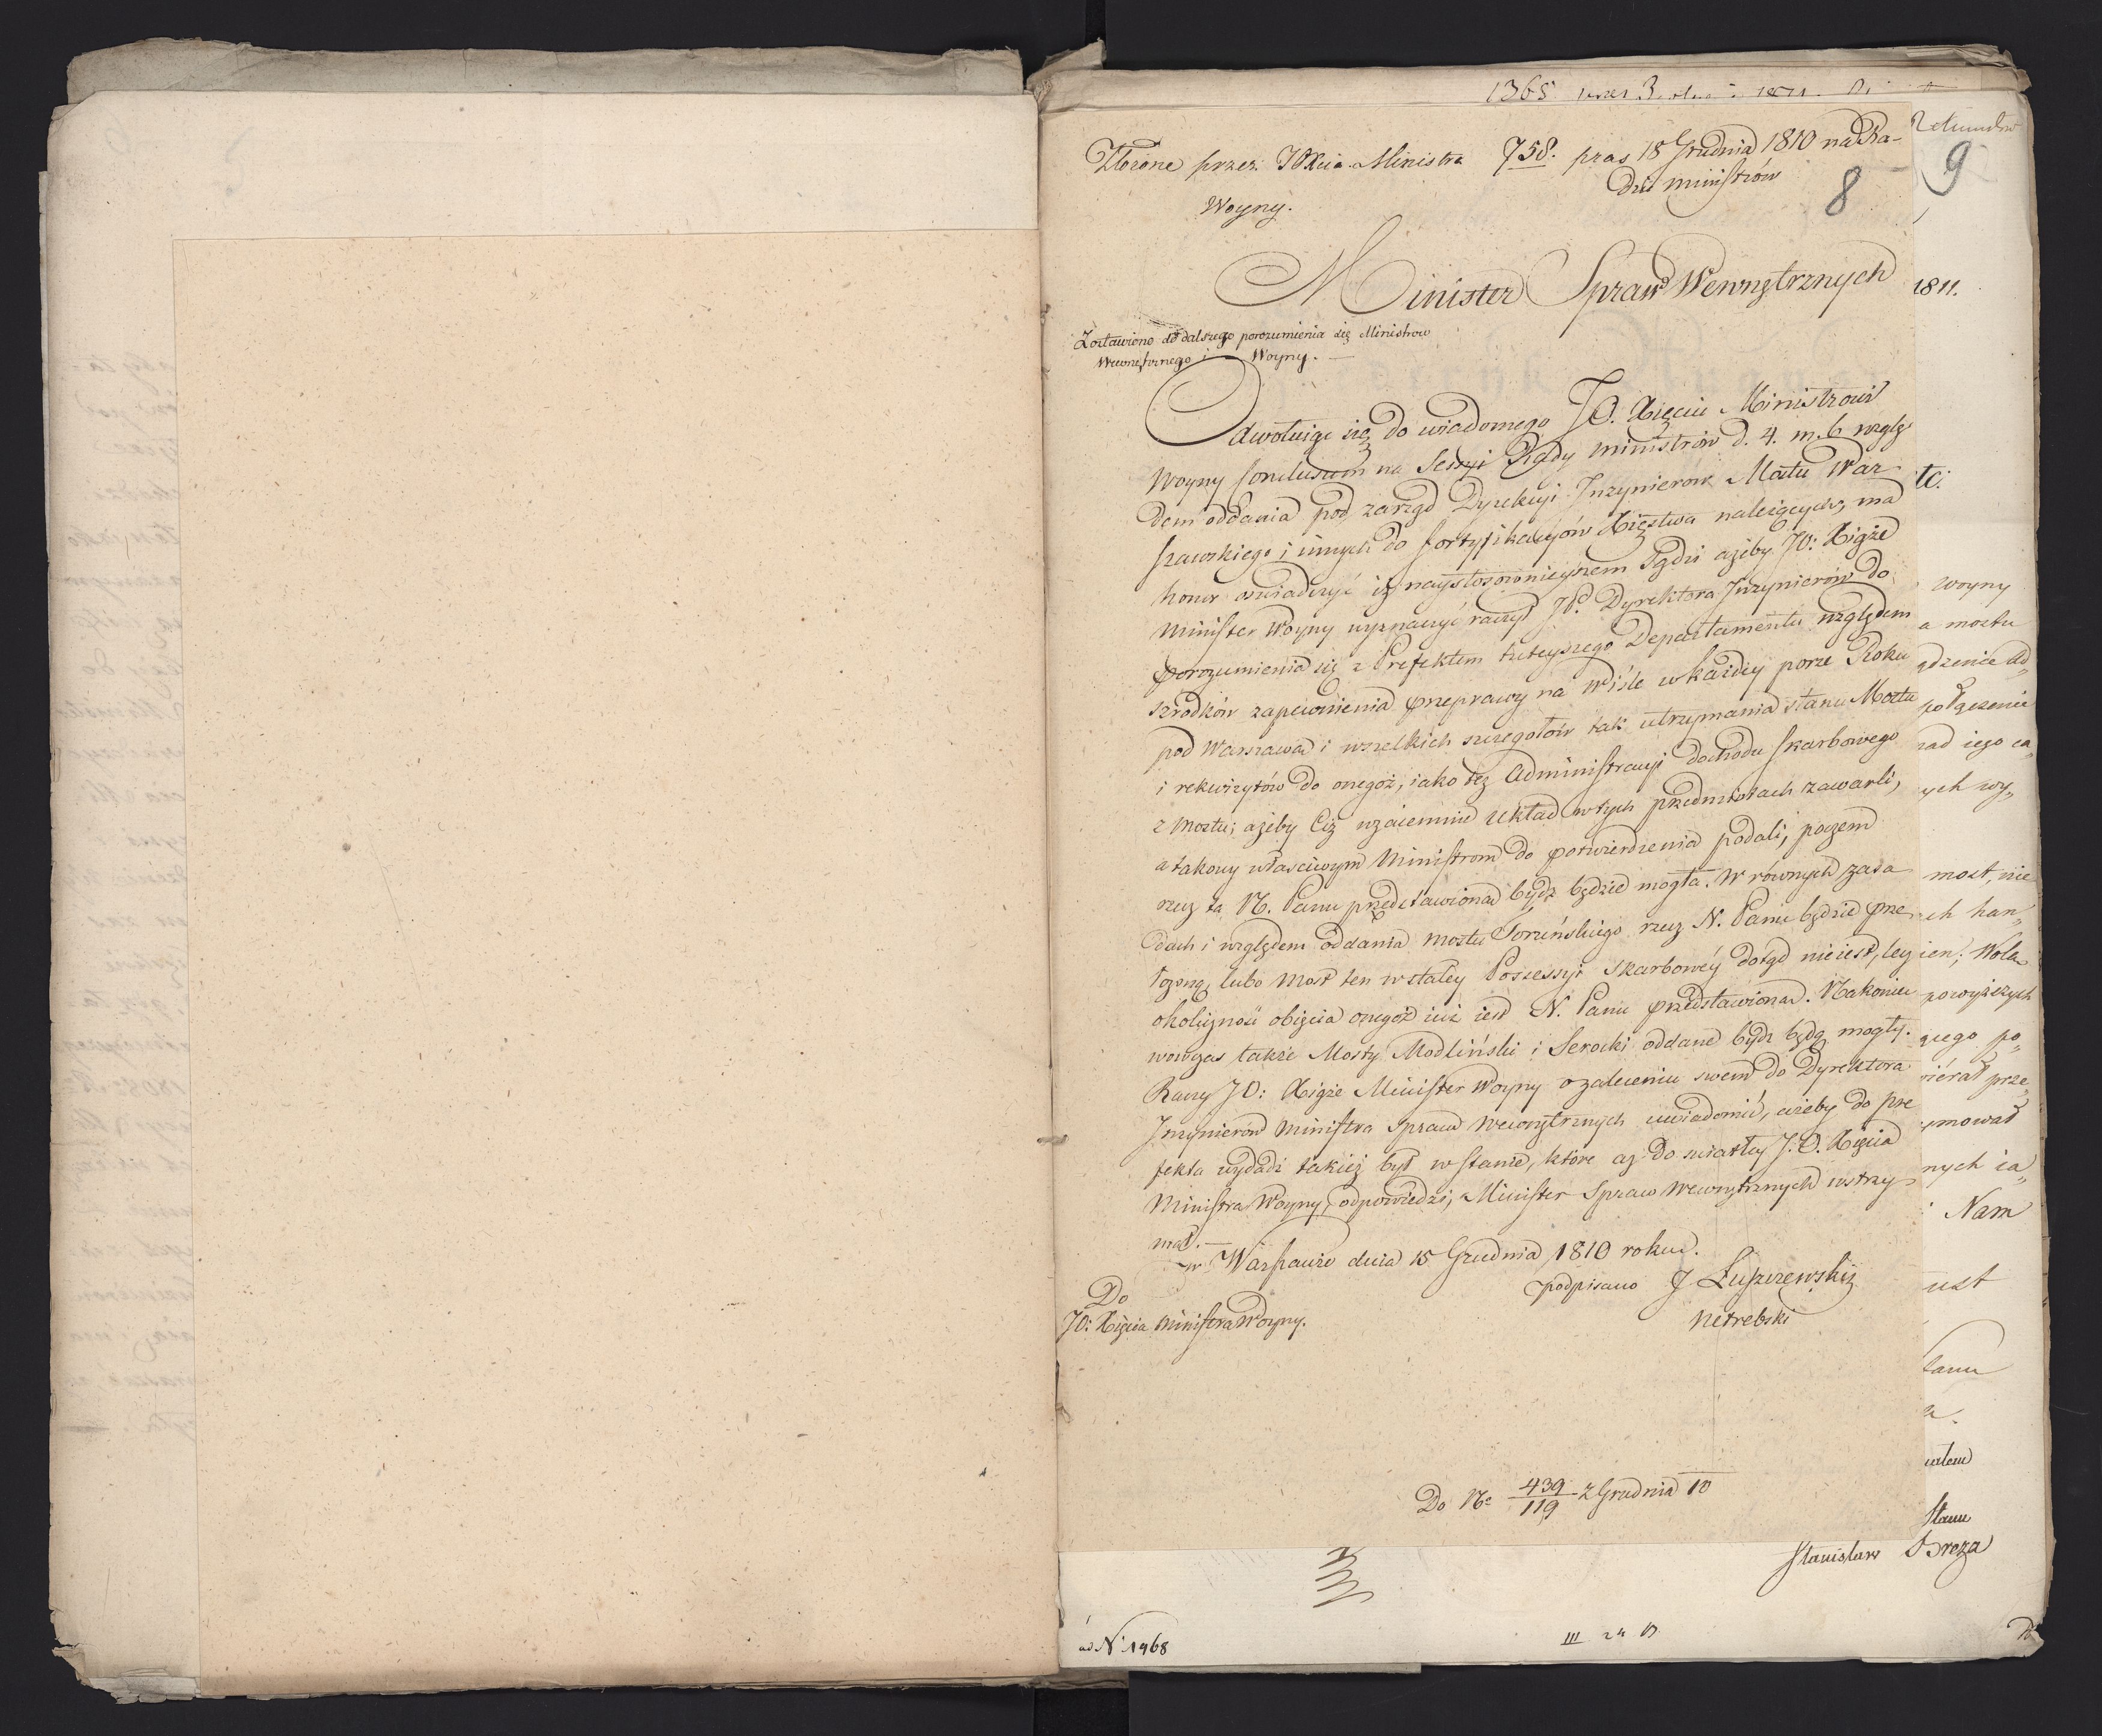 1365
Złożone przez JOXcia Ministra 758. pras 18 Grudnia 1810 na Ra-
dzie Ministrów
Woyny.
8
9
Minister Spraw Wewnętrznych
1811.
Zostawiono do dalszego porozumienia się Ministrow
Wewnętrznego i Woyny. —
Odwołuiąc się do wiadomego JO. Xięciu Ministrowi
Woyny Conclusum na Sessyi Rady Ministrów d. 4. m. b. wzglę
dem oddania pod zarząd Dyrekcyi Inżynierów Mostu War
szawskiego i innych do fortyfikacyów Xięstwa należących, ma
honor oświadczyć iż naystosownieyszem sądzi ażeby JO: Xiąże
Minister Woyny wyznaczyć raczył JP. Dyrektora Inżynierów do
porozumienia się z Prefektem tuteyszego Departamentu względem
szrodków zapewnienia przeprawy na Wiśle w każdey porze Roku
pod Warszawą i wszelkich szczegołów tak utrzymania stanu Mostu
i rekwizytów do onegoż, iako też Administracyi dochodu skarbowego
z Mostu; ażeby Ciż wzaiemnie układ w tych przedmiotach zawarli,
a takowy właściwym Ministrom do potwierdzenia podali, poczem
rzecz ta N. Panu przedstawiona bydz będzie mogła. W równych zasa
dach i względem oddania mostu Toruńskiego rzecz N. Panu będzie prze
łożoną, lubo Most ten w stałey Possessyi Skarbowéy dotąd nie iest, lecz
okoliczność obięcia onegoż iuż iest N. Panu przedstawiona. Nakoniec
wowczas także Mosty Modliński i Serocki oddane bydz będą mogły.
Raczy JO: Xiąże Minister Woyny o zaleceniu swem do Dyrektora
Inżynierów Ministra Spraw Wewnętrznych uwiadomić, ażeby do Pre
fekta wydać takież był w stanie, które aż do światłey J.O. Xięcia
Ministra Woyny, odpowiedzi, Minister Spraw Wewnętrznych wstrzy
mał. —
w Warszawie dnia 15 Grudnia 1810 roku.
podpisano J Łuszczewski
Netrebski
Do
JO: Xięcia Ministra Woyny.
Do No 439/119 z Grudnia 10
tć:
Woyny
a mostu
ądzenie ad„
połączenia
nad iego ca„
ych wy„
most, nie
ch han„
ien; Wola
powyższych
ącego po„
iérał prze„
ymował
nych ia„
Nam
ust
Stanu
Stanisław Breza
ad N: 1468